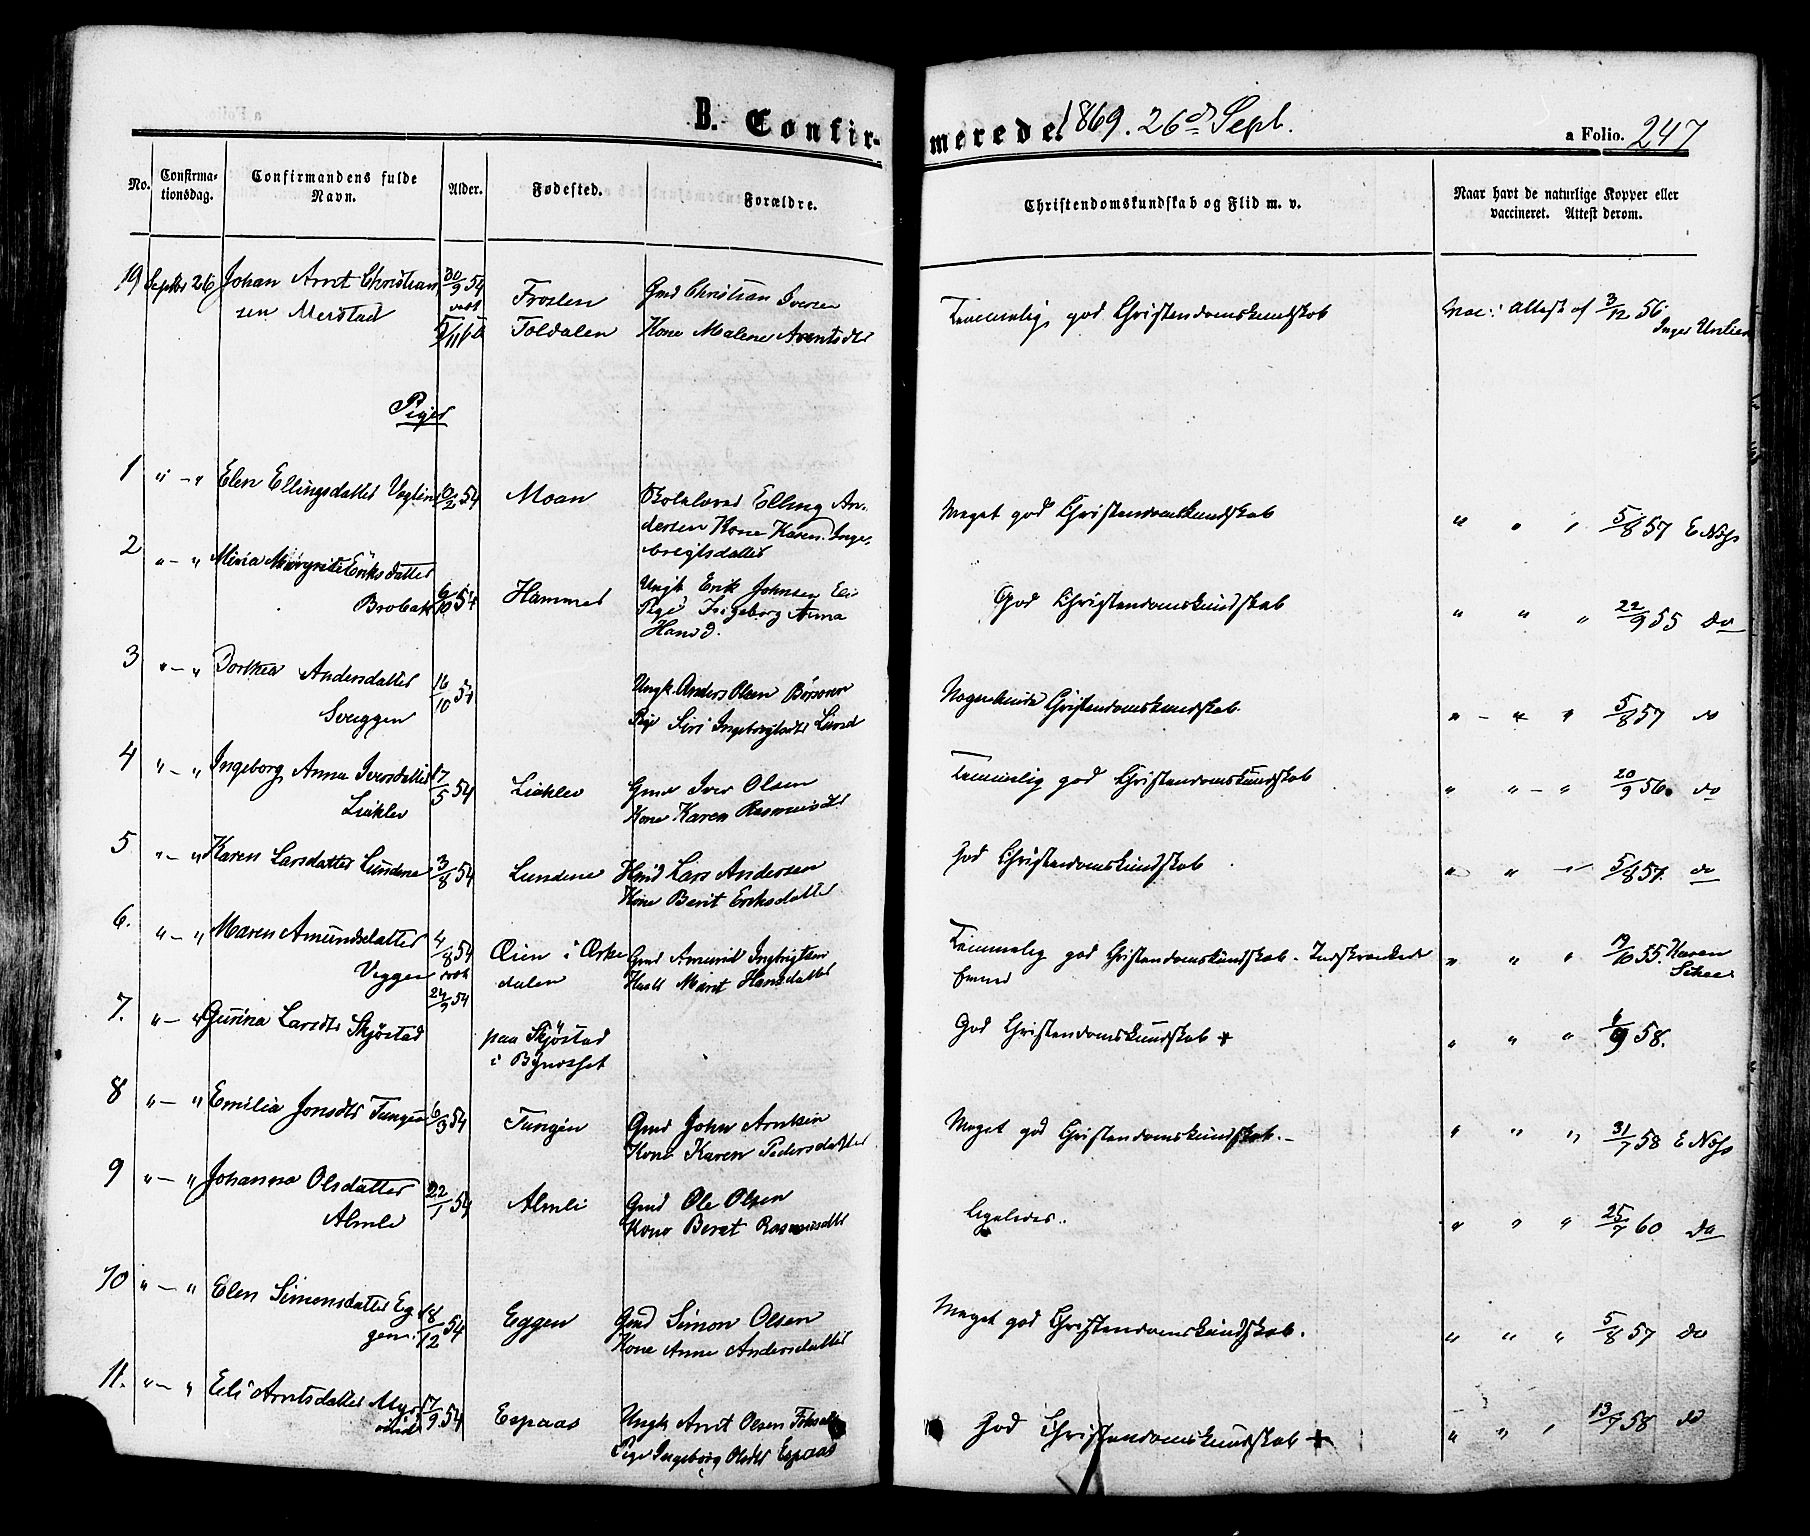 B. Confir-
merede. 1869. 26de Sept.
a Folio. 247
No.
Confirma-
tionsdag.
Confirmandens fulde
Navn.
Alder.
Fødested.
Forældre.
Christendomskundskab og Flid m. v.
Naar havt de naturlige Kopper eller
vaccineret. Attest derom.
19 Septbr 26 Johan Arnt Christian 30/9 54 Gmd Christian Iversen
sen Merstad Frosten
Toldalen Kone Malene Arentsdtr
Temmelig god Christendomskundskab
Vac: Attest af 3/12 56
Inger
Piger
1 " - " Elen Ellingsdatter Voglin 54 Moan Skolelærer Elling An-
dersen Kone Karen Inge-
brigtsdatter
Meget god Christendomskundskab " " " 5/8 57
2 " - " Mina Margrete Eriksdatter
Brobak 6/10 54 Hammer Ungk Erik Johnsen
Pige Ingeborg Anna
Hansd.
God Christendomskundskab " " " 22/9 55 do
3 " - " Dorthea Andersdatter 16/10 54 Ungk. Anders Olsen
Sveggen Pige Siri
Christendomskundskab. " - " " 5/8 57 do
4 " - " Ingeborg Anna Iversdatter 17/5 54 Liaklev Gmd Iver Olsen
Liaklev Kone Karen Rasmusdtr
Temmelig god Christendomskundskab " " - " 20/9 56. do
5 " - " Karen Larsdatter Lundene 3/8 54 Lundene Lars Andersen
Kone Berit Eriksdatter
God Christendomskundskab " " " 5/8 57. do
6. " - " Maren Amundsdatter 4/8 54 Øien i Orke
Viggen dalen Gmd Amund Ingbrigtsen
Marit Hansdatter
Temmelig god Christendomskundskab. Indskrænkede
Evner " " " 55. Karen
7. " - " Gurina Larsdtr Skjøstad 24/9 54 paa Skjøstad
i Bynæsset
God Christendomskundskab + " " " 58.
8 " - " Emilia Jonsdtr Tungen 6/3 54 Tungen Gmd John Arntsen
Kone Karen Pedersdatter
Meget god Christendomskundskab. - " " " 31/7 58
9 " - " Johanna Olsdatter 22/1 54 Almli Gmd Ole Olsen
Almli Kone Beret Rasmusdtr
Ligeledes. " " " 25/7 60 do
10 " - " Elen Simonsdatter Eg 18/12 54 Eggen Gmd Simon Olsen
gen. Kone Anne Andersdatter
Meget god Christendomskundskab. " " " 5/8 57 do
11. " - " Eli Arntsdatter 17/9 54 Espaas Ungk Arnt Olsen
Pige Ingeborg Olsdtr Espaas
God Christendomskundskab + " " " 13/7 58 do